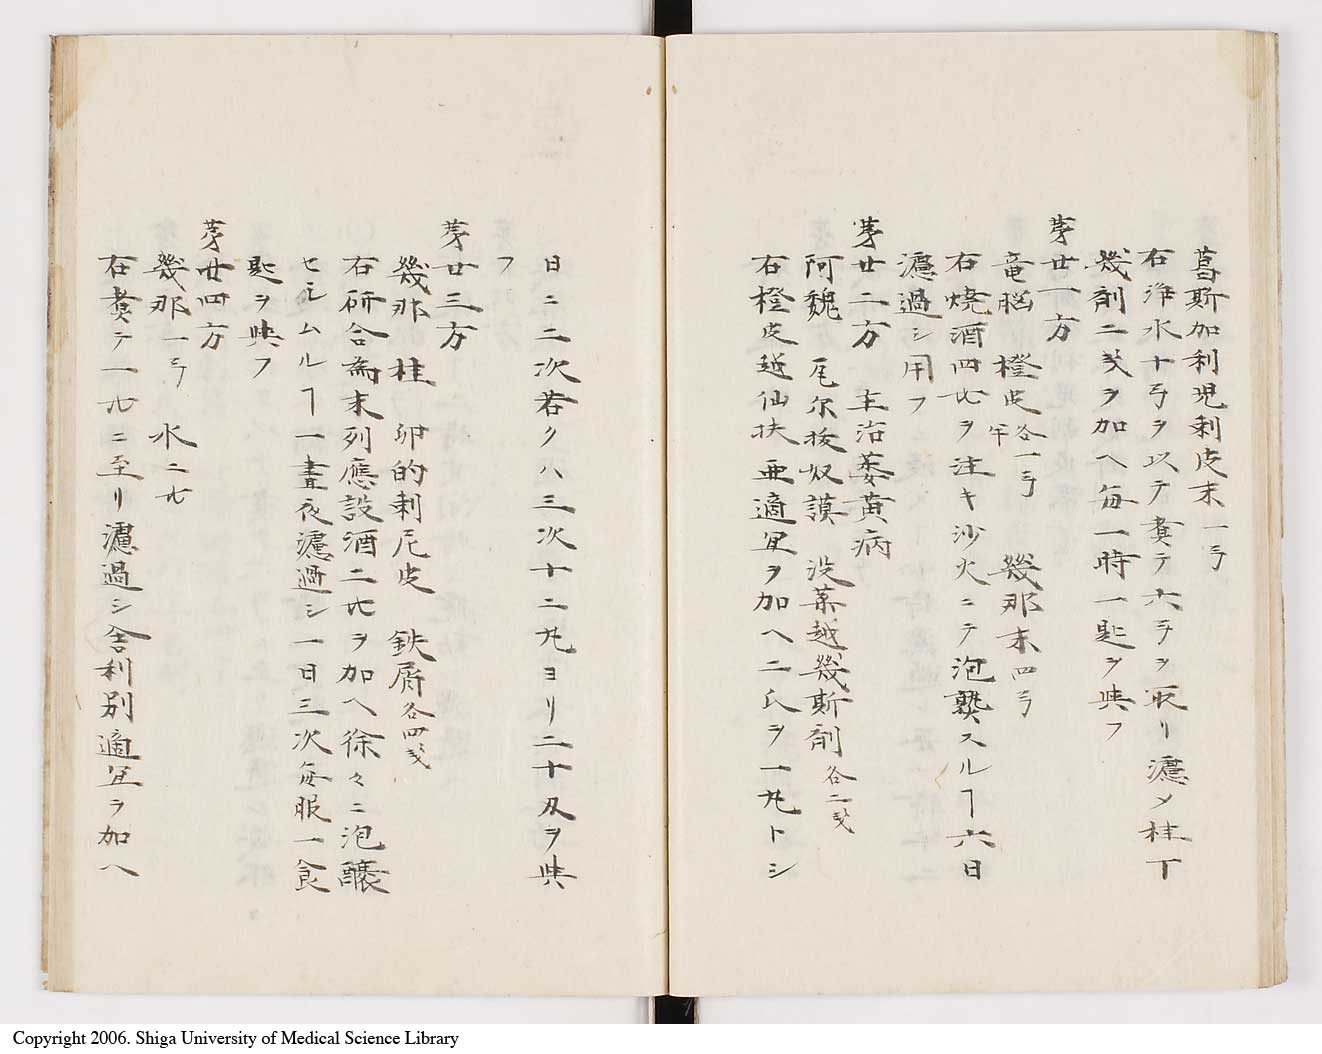 葛斯加利児剌皮末一ヲ
右浄水十ヲヲ以テ煑テ六ヲヲ取リ濾メ桂丁
幾剤二戔ヲ加ヘ毎一時一匙ヲ與フ
茅廿一方
竜脳 橙皮各一ヲ半 幾那末四ヲ
右焼酒四匕ヲ注キ沙火ニテ泡熨スルヿ六日
濾過シ用フ
茅廿二方 主治萎黄病
阿魏 尾尓抜奴謨 没薬越幾斯剤各二戔
右橙皮越仙扶亜適宜ヲ加ヘ二氏ヲ一丸トシ
日ニ二次若クハ三次十二丸ヨリ二十丸ヲ與
フ
茅廿三方
幾那 桂 卯的剌尼皮 鉄屑各四戔
右研合為末列應設酒二匕ヲ加ヘ徐々ニ泡醸
セシムルヿ一晝夜濾過シ一日三次毎服一食
匙ヲ與フ
茅廿四方
幾那一ヲ 水二匕
右煑テ一匕ニ至リ濾過シ舎利別適宜ヲ加ヘ
Copyright 2006. Shiga University of Medical Science Library